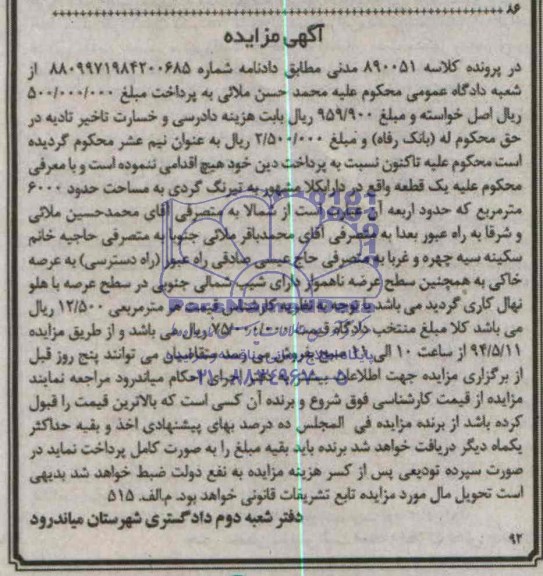 ۸۶
آگهی مزایده
در پرونده کلاسه ۸۹۰۰۵۱ مدنی مطابق دادنامه شماره ۸۸۰۹۹۷۱۹۸۴۲۰۰۶۸۵ از
شعبه دادگاه عمومی محکوم علیه محمد حسن ملائی به پرداخت مبلغ ۵۰۰/۰۰۰/۰۰۰
ریال اصل خواسته و مبلغ ۹۵۹/۹۰۰ ریال بابت هزینه دادرسی و خسارت تاخیر تادیه در
حق محکوم له (بانک رفاه) و مبلغ ۲/۵۰۰/۰۰۰ ریال به عنوان نیم عشر محکوم گردیده
است محکوم علیه تاکنون نسبت به پرداخت دین خود هیچ اقدامی ننموده است و با معرفی
محکوم علیه یک قطعه واقع در دارابکلا مشهور به تیرنگ گردی به مساحت حدود ۶۰۰۰
مترمربع که حدود اربعه آن عبارت است از شمالا به متصرفی آقای محمدحسین ملائی
و شرقا به راه عبور بعدا به متصرفی آقای محمدباقر ملائی جنوبا به متصرفی حاجیه خانم
سکینه سیه چهره و غربا به متصرفی حاج عیسی صادقی راه عبور (راه دسترسی) به عرصه
خاکی به همچنین سطح عرضه ناهموار دارای شیب شمالی جنوبی در سطح عرصه با هلو
نهال کاری گردید می باشد با توجه به نظریه کارشناس قیمت هر مترمربعی ۱۲/۵۰۰ ریال
می باشد کلا مبلغ منتخب دادگاه قیمت ۷۵/۰۰۰/۰۰۰ ریال می باشد و از طریق مزایده
۹۴/۵/۱۱ از ساعت ۱۰ الی ۱۱ صبح بفروش می رسد متقاضیان می توانند پنج روز قبل
از برگزاری مزایده جهت اطلاعات بیشتر به دفتر اجرای احکام میاندرود مراجعه نمایند
مزایده از قیمت کارشناسی فوق شروع و برنده آن کسی است که بالاترین قیمت را قبول
کرده باشد از برنده مزایده فی المجلس ده درصد بهای پیشنهادی اخذ و بقیه حداکثر
یکماه دیگر دریافت خواهد شد برنده باید بقیه مبلغ را به صورت کامل پرداخت نماید در
صورت سپرده تودیعی پس از کسر هزینه مزایده به نفع دولت ضبط خواهد شد بدیهی
است تحویل مال مورد مزایده تابع تشریفات قانونی خواهد بود. م.الف. ۵۱۵
دفتر شعبه دوم دادگستری شهرستان میاندرود
۹۲